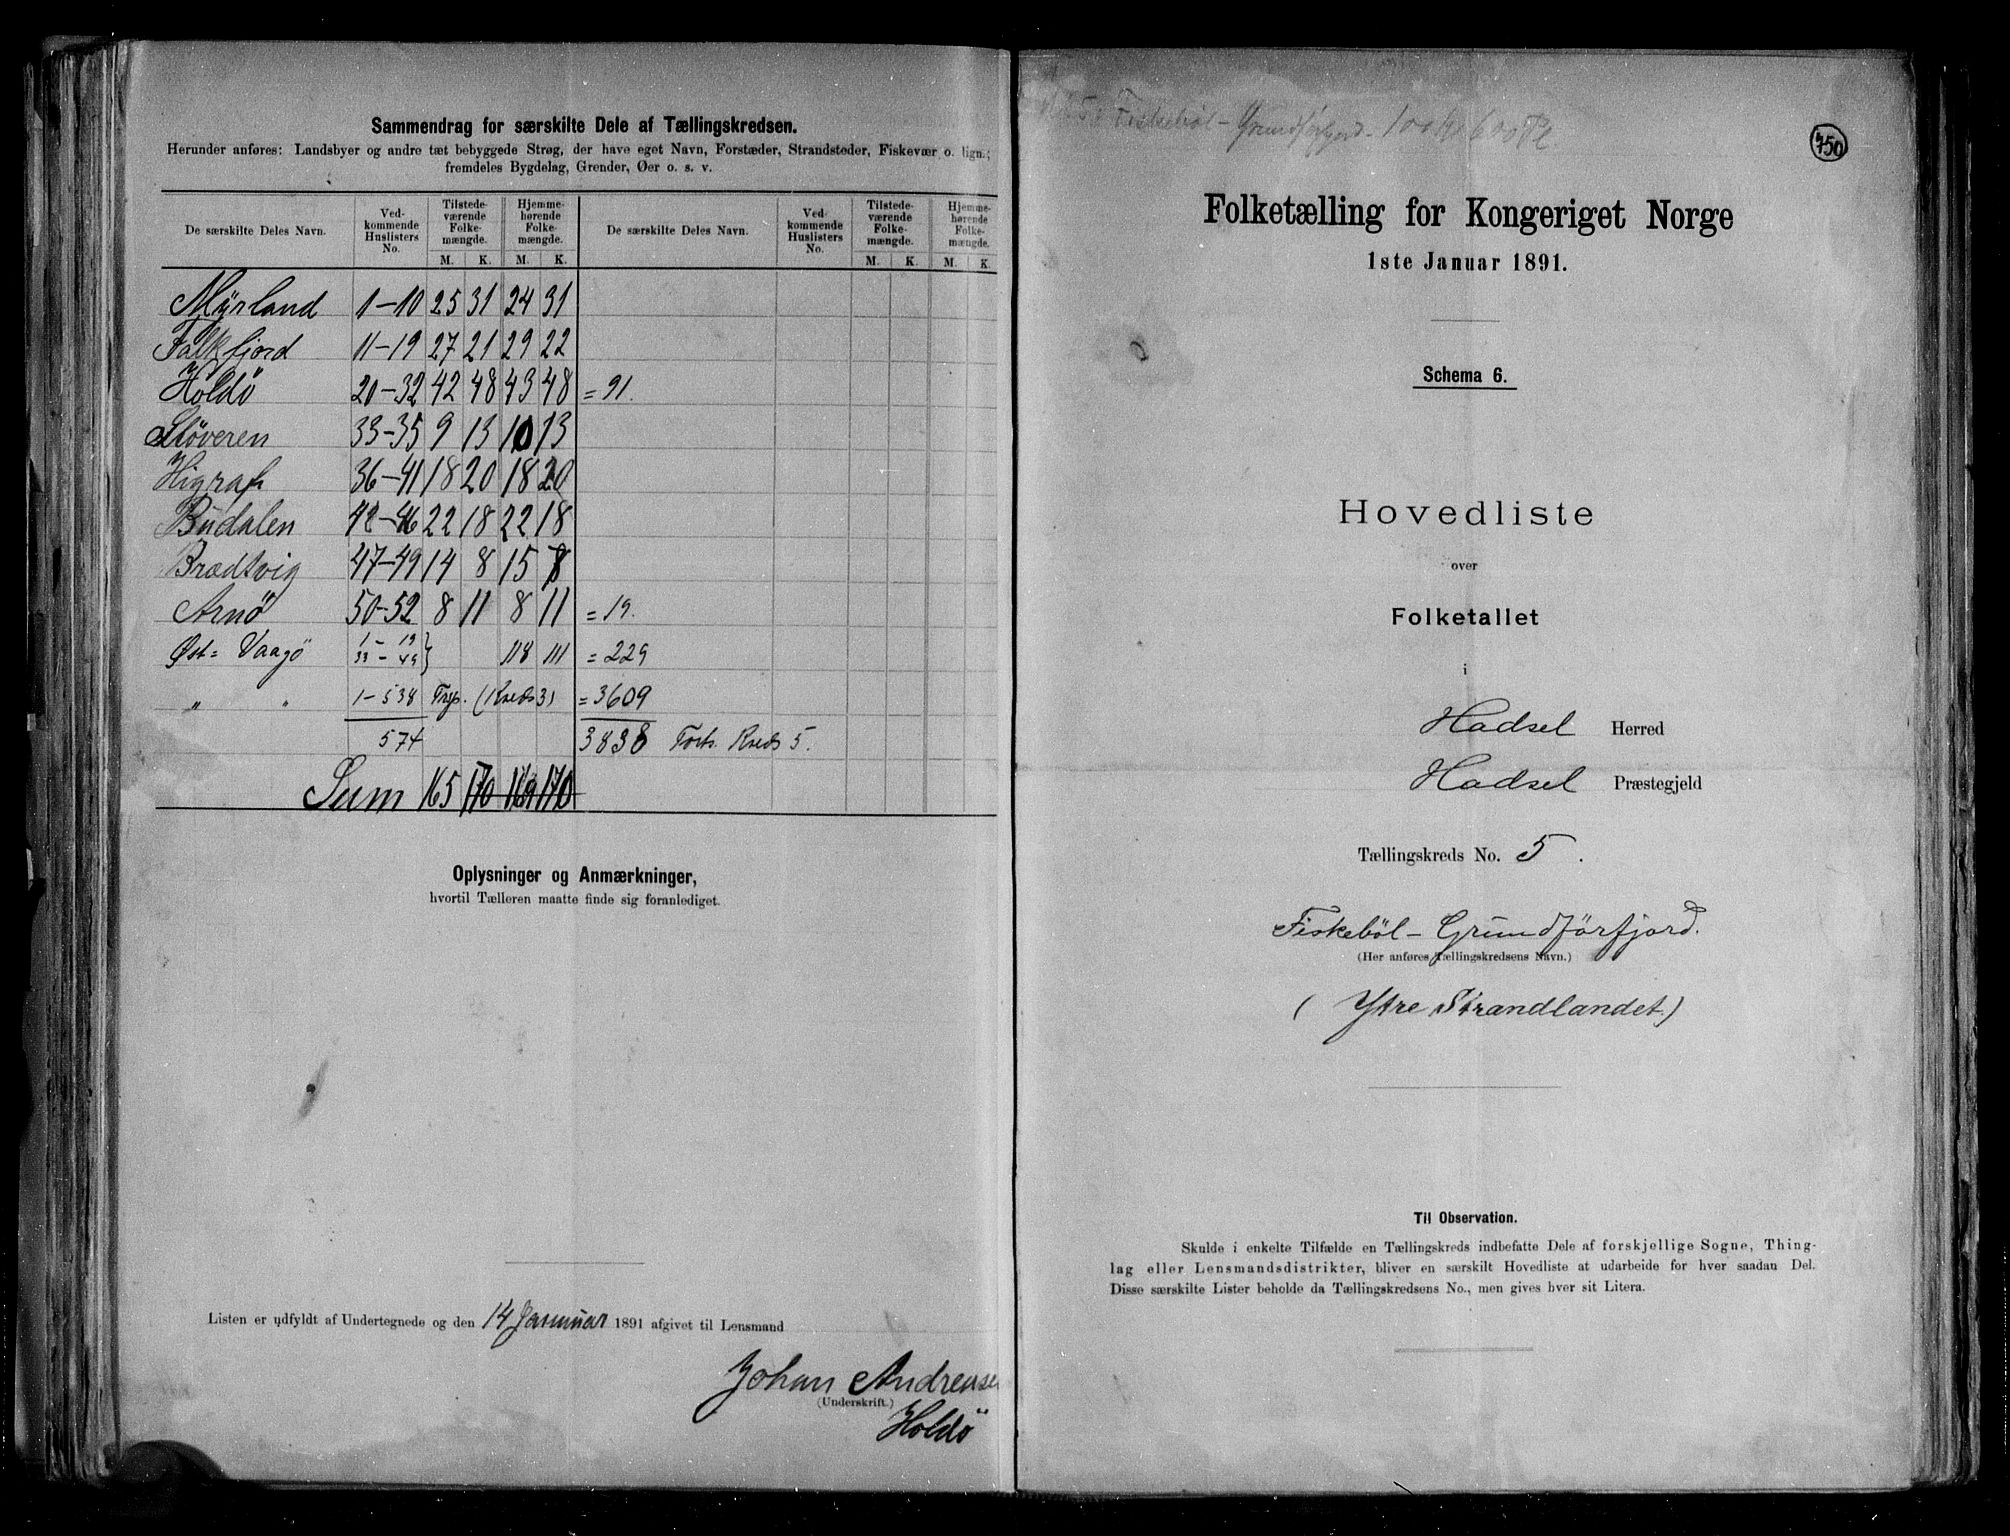 Sammendrag for særskilte Dele af Tællingskredsen.
Herunder anføres: Landsbyer og andre tæt bebyggede Strøg, der have eget Navn, Forstæder, Strandsteder, Fiskevær o. lign.;
fremdeles Bygdelag, Grender, Øer o. s. v.
De særskilte Deles Navn. Ved-kommende Huslisters No. Tilstede-værende Folke-mængde. Hjemme-hørende Folke-mængde. De særskilte Deles Navn. Ved-kommende Huslisters No. Tilstede-værende Folke-mængde. Hjemme-hørende Folke-mængde.
M. K. M. K. M. K. M. K.
Myrland 1-10 25 31 24 31
Falkfjord 11-19 27 21 29 22
Holdö 20-32 42 48 43 48 = 91.
Slöveren 33-35 9 13 10 13
Higraf 36-41 18 20 18 20
Budalen 42-46 22 18 22 18
Brædtvig 47-49 14 8 15 8
Arnö 50-52 8 11 8 11 = 19.
Øst= Vaagö 1-19 33-49 } 118 111 = 229
" " 1-538 (Kreds 3) = 3609
574 3838 Forts. Kreds 5.
Sum 165 170 169 170
Oplysninger og Anmærkninger,
hvortil Tælleren maatte finde sig foranlediget.
Listen er udfyldt af Undertegnede og den 14 Januar 1891 afgivet til Lensmand
Johan Andreasen
(Underskrift.)
Holdö
Fiskeböl - Grundförfjord -
750
Folketælling for Kongeriget Norge
1ste Januar 1891.
Schema 6.
Hovedliste
over
Folketallet
i
Hadsel Herred
Hadsel Præstegjeld
Tællingskreds No. 5.
Fiskeböl - Grundförfjord.
(Her anføres Tællingskredsens Navn.)
(Ytre Strandlandet)
Til Observation.
Skulde i enkelte Tilfælde en Tællingskreds indbefatte Dele af forskjellige Sogne, Thing-
lag eller Lensmandsdistrikter, bliver en særskilt Hovedliste at udarbeide for hver saadan Del.
Disse særskilte Lister beholde da Tællingskredsens No., men gives hver sit Litera.